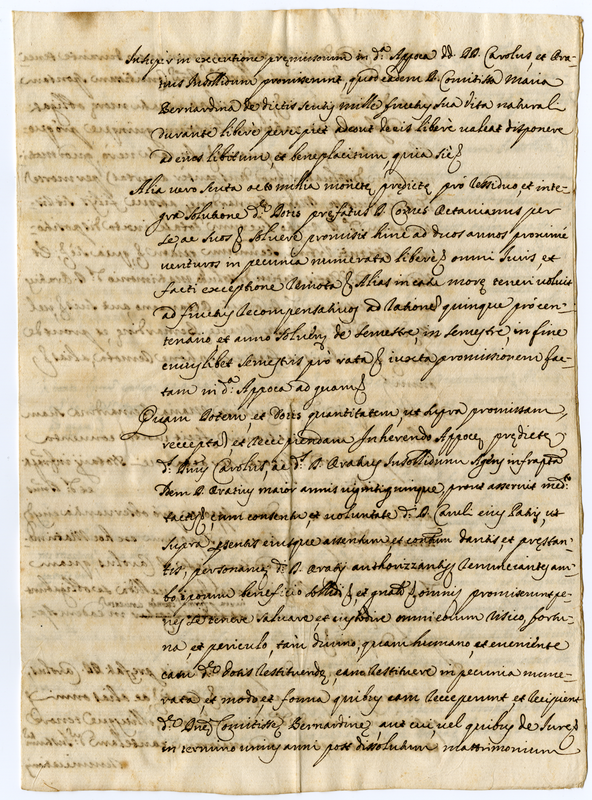 Insuper in executione premissorum in d.ª Appoca dd. DD. Carolus et Ora-
tius insollidum promiserunt, quod eadem D. Comitissa Maria
Bernardina de dictis scutis mille fructus sua vita naturali
durante liberè percipiet adeout de eis liberè valeat disponere
ad eius libitum, et beneplacitum quia sic
Alia vero scuta octo millia monetę predictę prò residuo, et inte-
gra solutione d. Dotis prefatus D. Comes Octavianus per
se ac suos solvere promisit hinc ad duos annos proximè
venturos in pecunia numerata libere omni Juris, et
facti exceptione remota Alias in casu morę teneri voluit
ad fructus recompensativos ad rationem quinque pro cen-
tenario et anno solvendos de semestre, in semestre, in fine
cuiuslibet semestris prò rata iuxta promissionem fac-
tam in d.ª Appoca ad quam
Quam Dotem, et Dotis quantitatem, ut supra promissam,
recepta et recipiendam Inherendo Appocę predictę
d. Carolus, ac d. D. Oratius Insollidum
Idem D. Oratius maior annis vigintiquinque, prout asseruit
tactis cum consensu, et voluntate d. D. Caroli eius Patris, ut
supra presentis eiusque assensum et consensum dantis, et prestan-
tis, personamque d. D. Oratij authorizzantis renunciantes am-
bo promiserunt pe-
nes se tenere salvare, et custodire omni eorum risico, fortu-
na, et periculo, tàm divino, quam humano, et eveniente
casu d. dotis restituendę, eam restituere in pecunia nume-
rata et modo et forma quibus eam receperunt, et recipient
d. Comitissę Bernardinę aut cui vel quibus de Jure
in termino unius anni post dissolutum mattrimonium